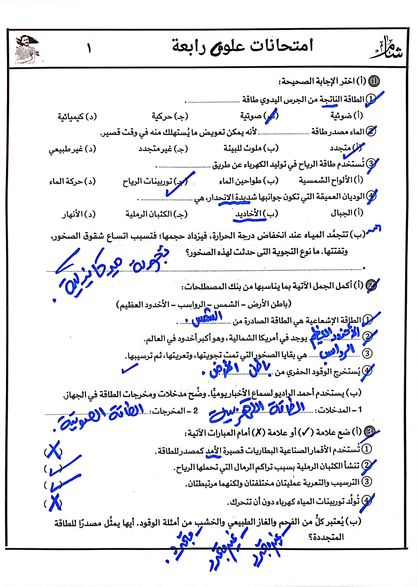 امتحانات علوم رابعة
١
(أ) اختر الإجابة الصحيحة:
١ الطاقة الناتجة من الجرس اليدوي طاقة ..........
(أ) ضوئية (ب) صوتية (جـ) حركية (د) كيميائية
٢ الماء مصدر طاقة .......... لأنه يمكن تعويض ما يُستهلك منه في وقت قصير.
(أ) متجدد (ب) ملوث للبيئة (جـ) غير متجدد (د) غير طبيعي
٣ تُستخدم طاقة الرياح في توليد الكهرباء عن طريق ..........
(أ) الألواح الشمسية (ب) طواحين الماء (جـ) توربينات الرياح (د) حركة الماء
٤ الوديان العميقة التي تكون جوانبها شديدة الانحدار، هي ..........
(أ) الجبال (ب) الأخاديد (جـ) الكثبان الرملية (د) الأنهار
(ب) تتجمَّد المياه عند انخفاض درجة الحرارة، فيزداد حجمها؛ فتسبب اتساع شقوق الصخور،
وتفتتها. ما نوع التجوية التي حدثت لهذه الصخور؟
تجوية ميكانيكية.
(أ) أكمل الجمل الآتية بما يناسبها من بنك المصطلحات:
(باطن الأرض – الشمس – الرواسب – الأخدود العظيم)
١ الطاقة الإشعاعية هي الطاقة الصادرة من الشمس.
٢ الأخدود العظيم يوجد في أمريكا الشمالية، وهو أكبر أخدود في العالم.
٣ الرواسب هي بقايا الصخور التي تمت تجويتها، وتعريتها، ثم ترسيبها.
٤ يُستخرج الوقود الحفري من باطن الأرض
(ب) يستخدم أحمد الراديو لسماع الأخبار يوميًّا. وضِّح مدخلات ومخرجات الطاقة في الجهاز.
1 - المدخلات: الطاقة الكهربية 2 - المخرجات: الطاقة الصوتية
(أ) ضع علامة (✓) أو علامة (✗) أمام العبارات الآتية:
١ تستخدم الأقمار الصناعية البطاريات قصيرة الأمد كمصدر للطاقة. (✗)
٢ تنشأ الكثبان الرملية بسبب تراكم الرمال التي تحملها الرياح. (✓)
٣ الترسيب والتعرية عمليتان مختلفتان ولكنهما مرتبطتان. (✓)
٤ تُولِّد توربينات المياه كهرباء دون أن تتحرك. (✗)
(ب) يُعتبر كلٌّ من الفحم والغاز الطبيعي والخشب من أمثلة الوقود. أيها يمثِّل مصدرًا للطاقة
المتجددة؟